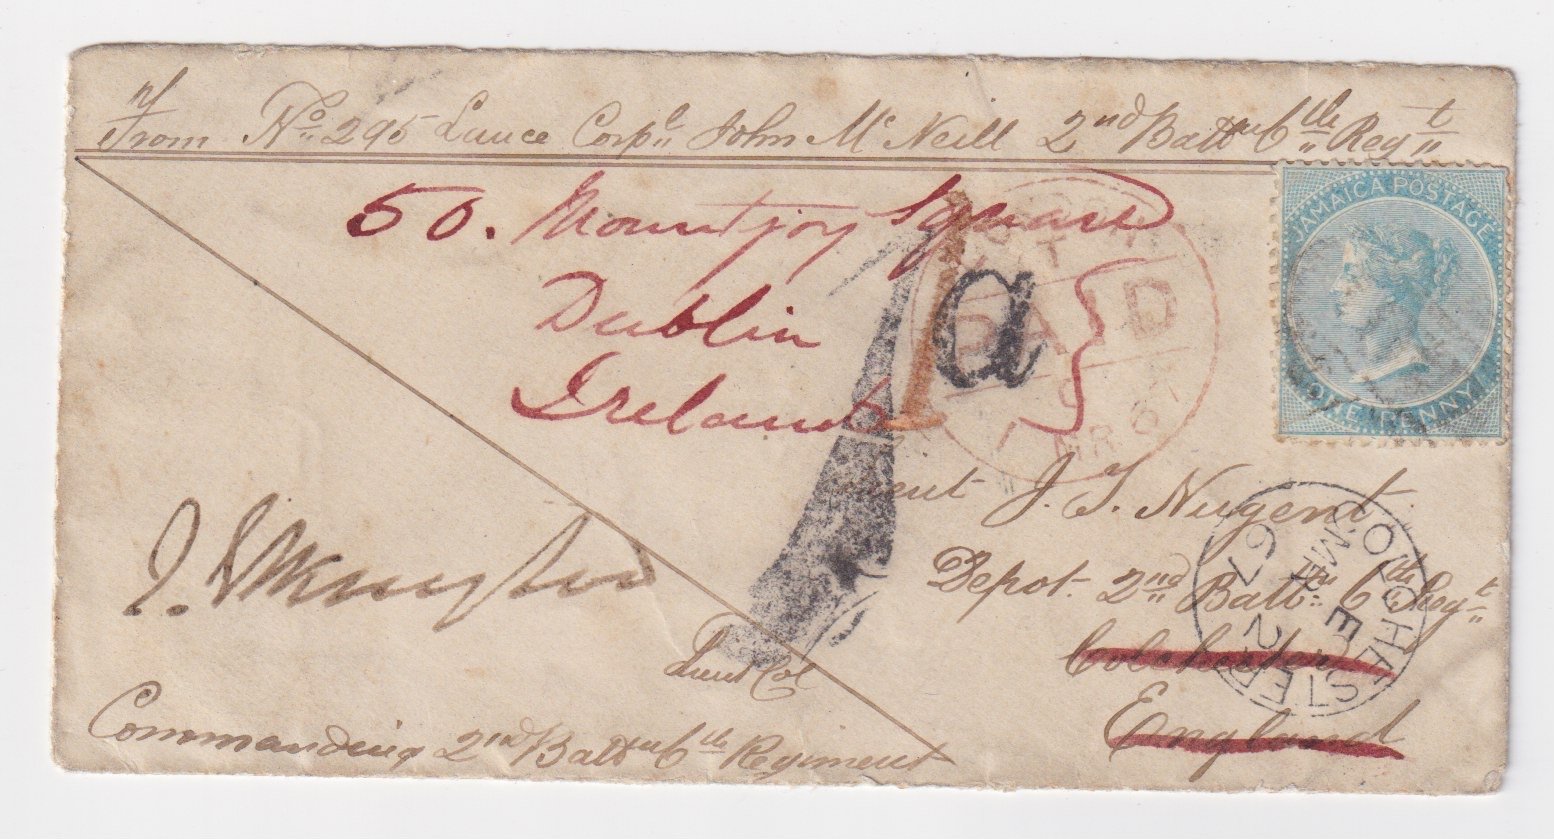 From No. 295 Lance Corpl John McNeill 2nd Battn 6th Regt
50. Mountjoy Square
Dublin
Ireland
JAMAICA POSTAGE
ONE PENNY
PAID
MR 67
1d
J. T. Nugent
Depot. 2nd Battn 6th Regt
Colchester
England
COLCHESTER
E
MR 2
67
Lieut Col
Commanding 2nd Battn 6th Regiment